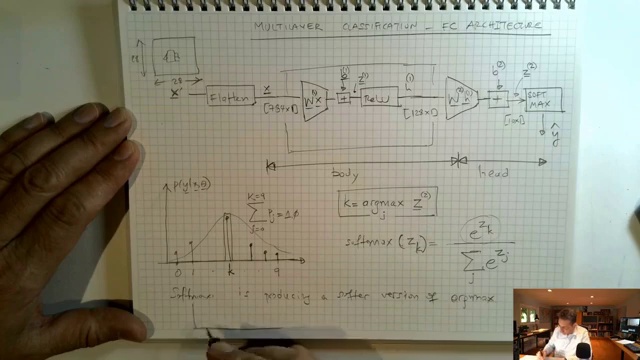 MULTILAYER CLASSIFICATION - FC ARCHITECTURE
28
28
x
Flatten
x
[784x1]
W⁽¹⁾x
b⁽¹⁾
+
z⁽¹⁾
ReLU
h⁽¹⁾
[128x1]
W⁽²⁾h
b⁽²⁾
+
z⁽²⁾
[10x1]
SOFT
MAX
ŷ
body
head
K=9
Σ
j=0
k = argmax z⁽²⁾
j
softmax (z_k) = e^{z_k}
Σ e^{z_j}
j
0 1 k 9
Softmax is producing a softer version of argmax